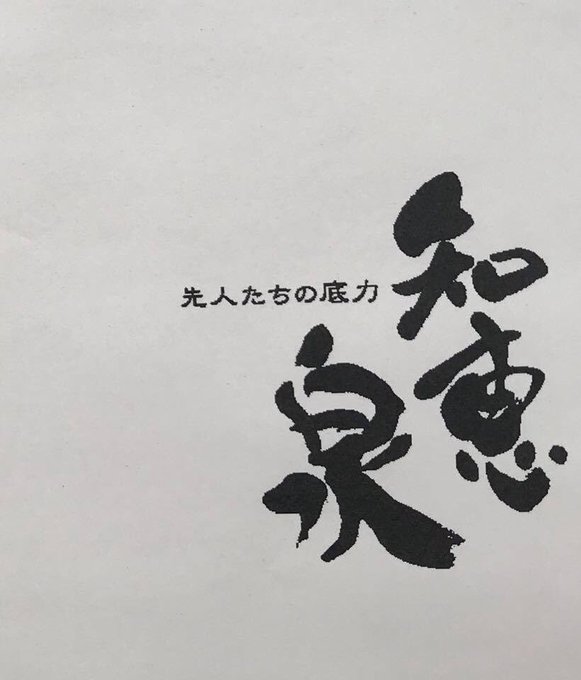 先人たちの底力
知恵
泉